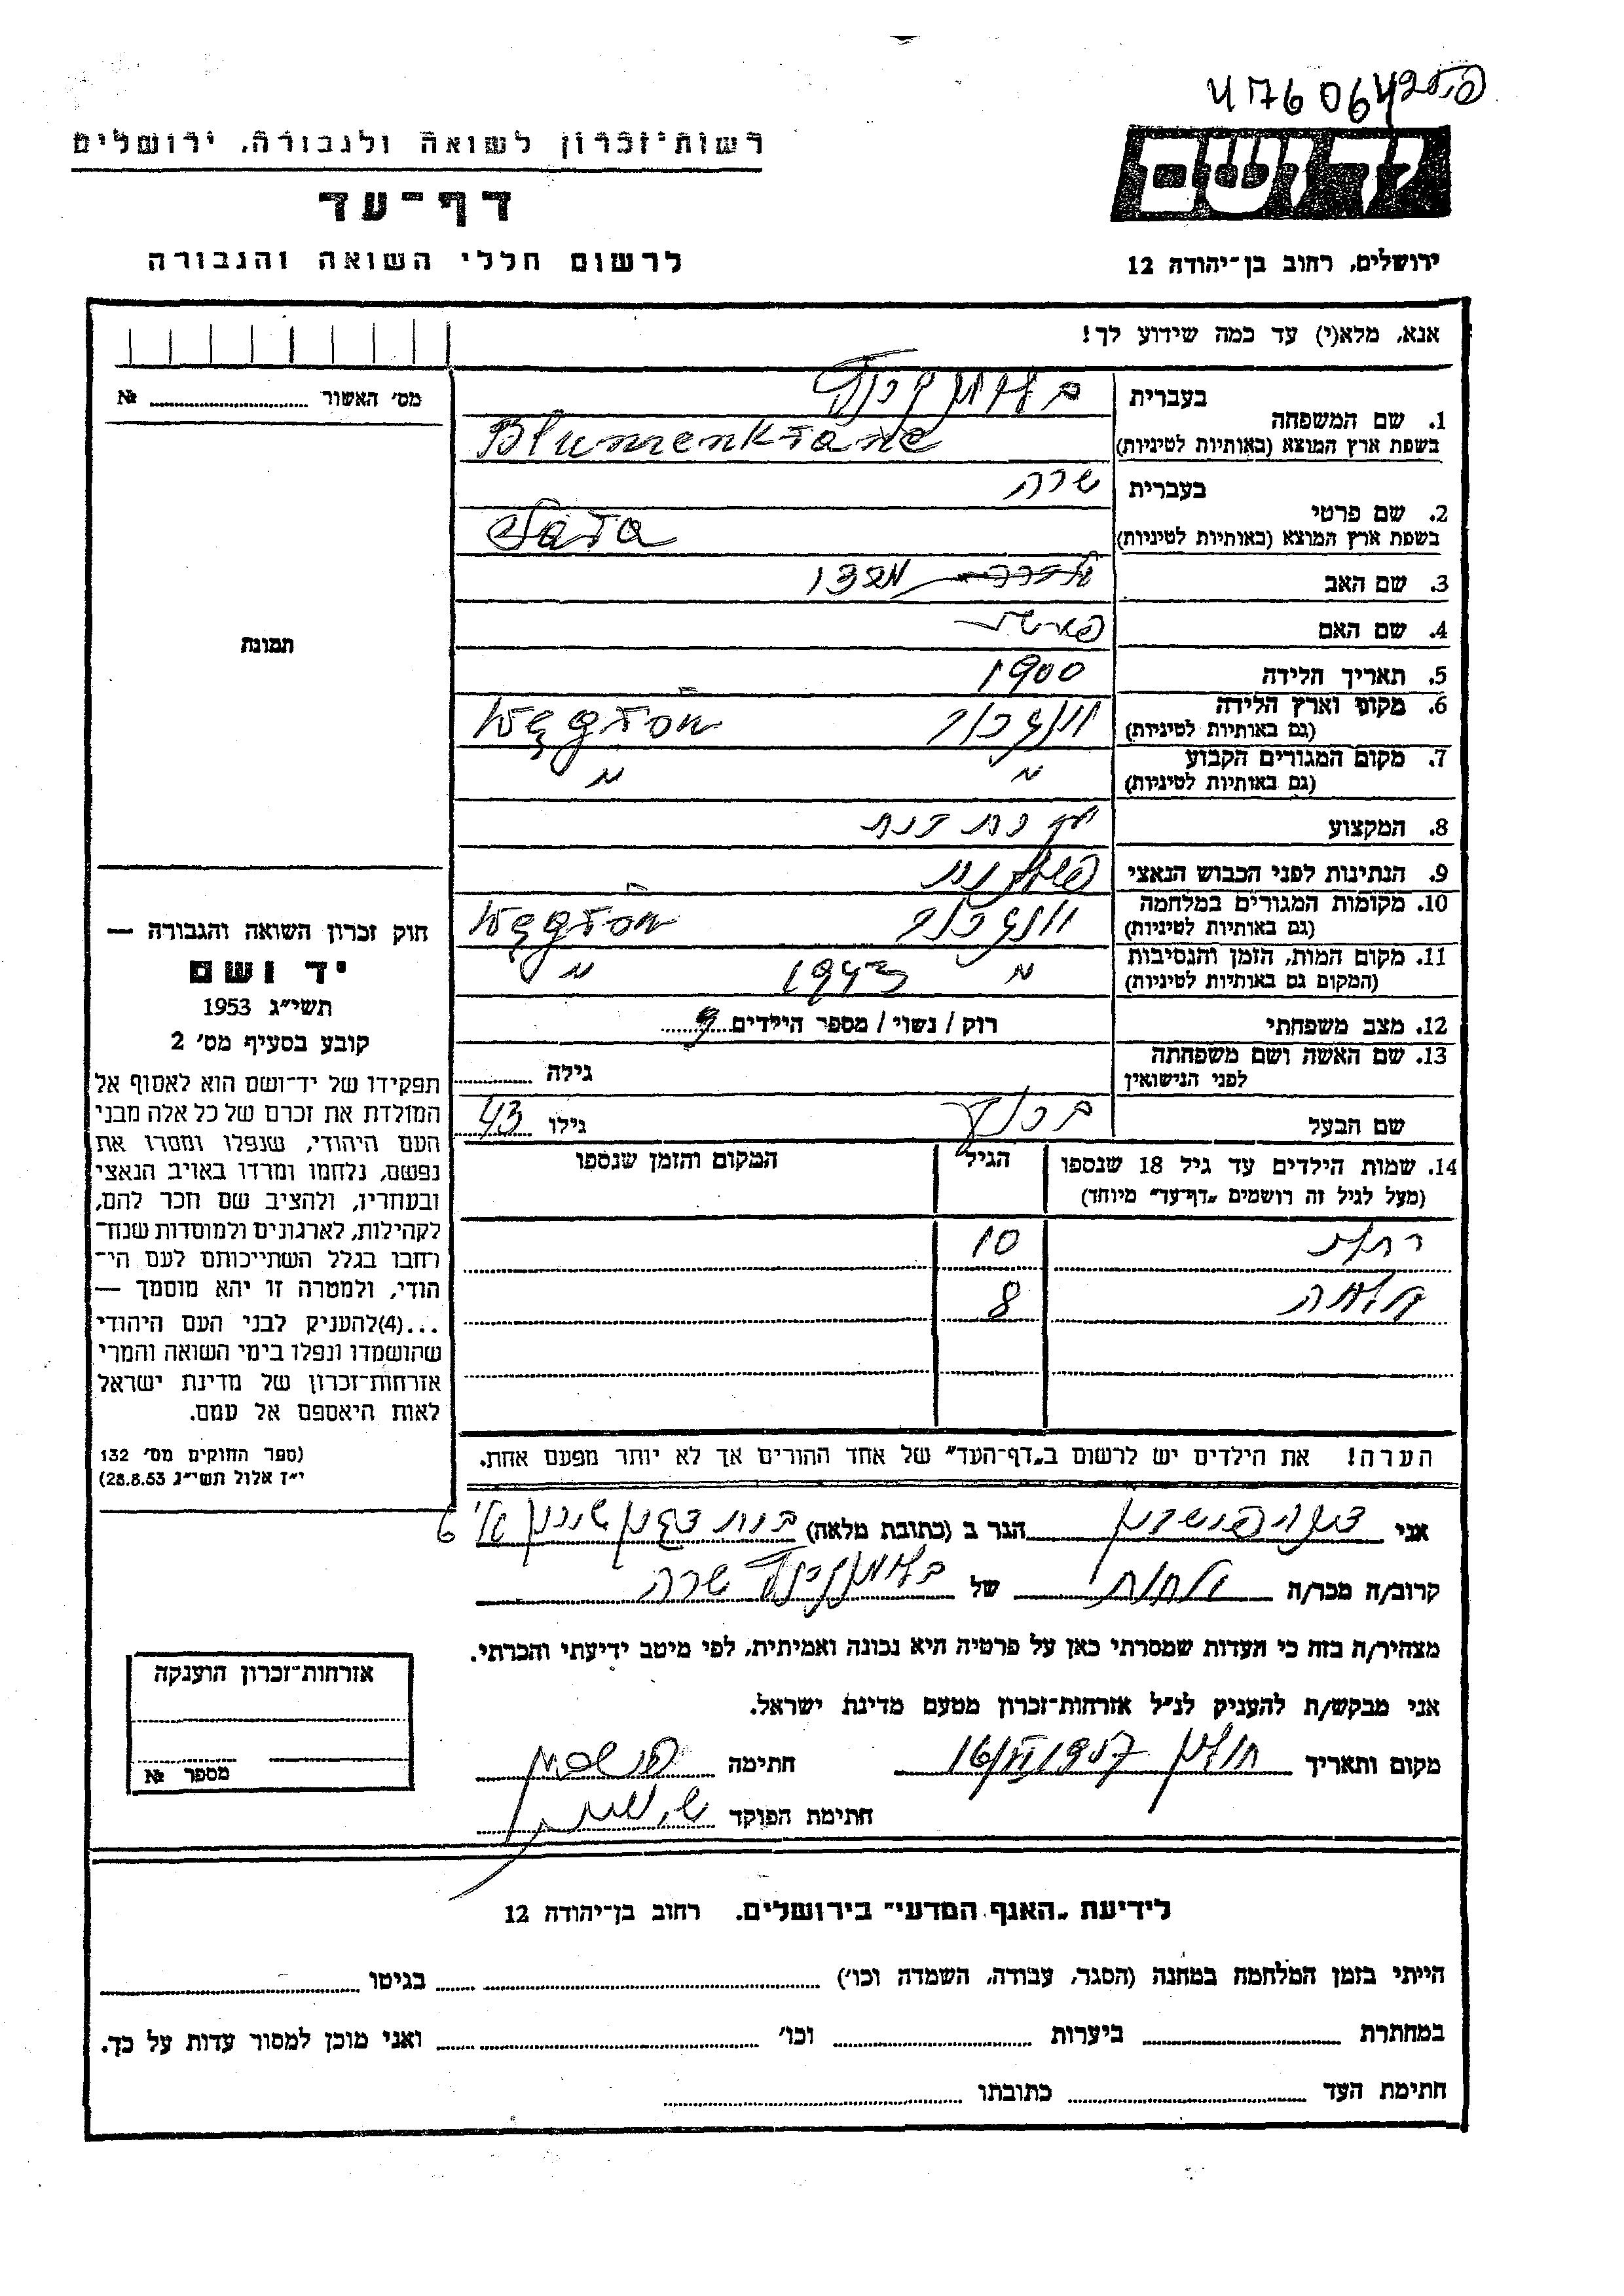 476064
רשות־זכרון לשואה ולגבורה, ירושלים
דף־עד
לרשום חללי השואה והגבורה
ידושם
ירושלים, רחוב בן־יהודה 12
אנא, מלא(י) עד כמה שידוע לך!
מס' האשור № 
תמונה
1. שם המשפחה
בעברית
בשפת ארץ המוצא (באותיות לטיניות) Blumenkranc
2. שם פרטי
בעברית שרה
בשפת ארץ המוצא (באותיות לטיניות) Sara
3. שם האב
4. שם האם
5. תאריך הלידה 1900
6. מקום וארץ הלידה
(גם באותיות לטיניות) Węgrów
7. מקום המגורים הקבוע " "
(גם באותיות לטיניות)
8. המקצוע עקרת בית
9. הנתינות לפני הכבוש הנאצי פולנית
10. מקומות המגורים במלחמה
(גם באותיות לטיניות) Węgrów
11. מקום המות, הזמן והנסיבות " 1943 "
(המקום גם באותיות לטיניות)
12. מצב משפחתי רוק / נשוי / מספר הילדים
13. שם האשה ושם משפחתה
לפני הנישואין גילה
שם הבעל ברוך גילו 43
14. שמות הילדים עד גיל 18 שנספו הגיל המקום והזמן שנספו
(מעל לגיל זה רושמים „דף־עד" מיוחד)
רחל 10
8
הערה! את הילדים יש לרשום ב„דף־העד" של אחד ההורים אך לא יותר מפעם אחת.
חוק זכרון השואה והגבורה —
יד ושם
תשי״ג 1953
קובע בסעיף מס' 2
תפקידו של יד־ושם הוא לאסוף אל
המולדת את זכרם של כל אלה מבני
העם היהודי, שנפלו ומסרו את
נפשם, נלחמו ומרדו באויב הנאצי
ובעוזריו, ולהציב שם וזכר להם,
לקהילות, לארגונים ולמוסדות שנח־
רחבו בגלל השתייכותם לעם הי־
הודי, ולמטרה זו יהא מוסמך —
...(4)להעניק לבני העם היהודי
שהושמדו ונפלו בימי השואה והמרי
אזרחות־זכרון של מדינת ישראל
לאות היאספם אל עמם.
(ספר החוקים מס' 132
י״ז אלול תשי״ג 28.8.53)
אני הגר ב (כתובת מלאה)
קרוב/ה מכר/ה של שרה
מצהיר/ה בזה כי העדות שמסרתי כאן על פרטיה היא נכונה ואמיתית, לפי מיטב ידיעתי והכרתי.
אני מבקש/ת להעניק לנ״ל אזרחות־זכרון מטעם מדינת ישראל.
מקום ותאריך חולון חתימה
חתימת הפוקד
אזרחות־זכרון הוענקה
מספר №
לידיעת „האגף המדעי" בירושלים. רחוב בן־יהודה 12
הייתי בזמן המלחמה במחנה (הסגר, עבודה, השמדה וכו') בגיטו
במחתרת ביערות וכו' ואני מוכן למסור עדות על כך.
חתימת העד כתובתו